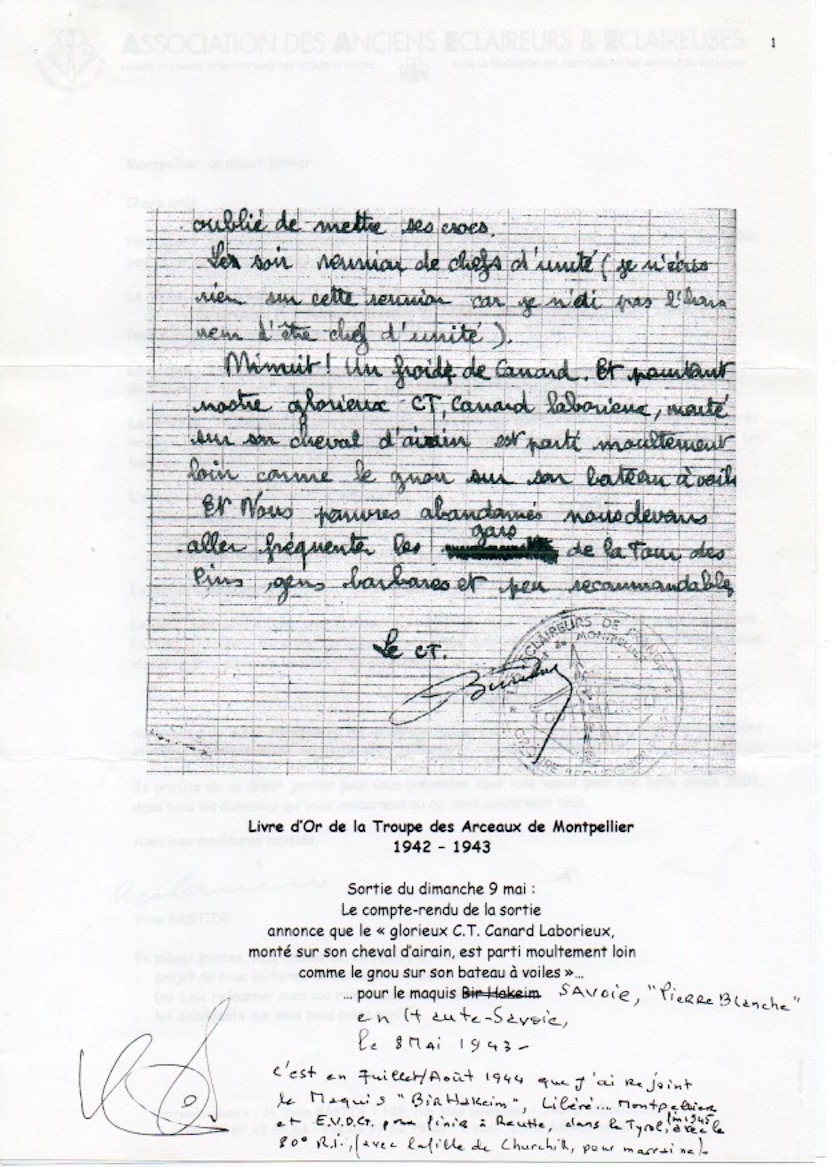 1
oublié de mettre ses crocs.
Le soir reunion de chefs d'unité ( je n'écris
rien sur cette reunion car je n'ai pas l'hon
neur d'être chef d'unité ).
Minuit ! Un froid de Canard. Et pourtant
nostre glorieux CT, Canard laborieux, monté
sur son cheval d'airain est parti moultement
loin comme le gnou sur son bateau à voil
Et Nous pauvres abandonnés nous devons
gars
aller fréquenter les de la Tour des
Pins, gens barbares et peu recommandables
Le CT.
ECLAIREURS DE FRANCE
MONTPELLIER
Livre d'Or de la Troupe des Arceaux de Montpellier
1942 - 1943
Sortie du dimanche 9 mai :
Le compte-rendu de la sortie
annonce que le « glorieux C.T. Canard Laborieux,
monté sur son cheval d'airain, est parti moultement loin
comme le gnou sur son bateau à voiles »...
... pour le maquis Bir Hakeim SAVOIE, "Pierre Blanche"
en Haute-Savoie,
le 8 MAI 1943 -
C'est en Juillet/Août 1944 que j'ai rejoint
le Maquis "Bir Hakeim", Libéré... Montpellier
et E.V.D.G. pour finir à Reutte, dans le Tyrol, avec le
80° R.I., (avec la fille de Churchill, pour marraine).